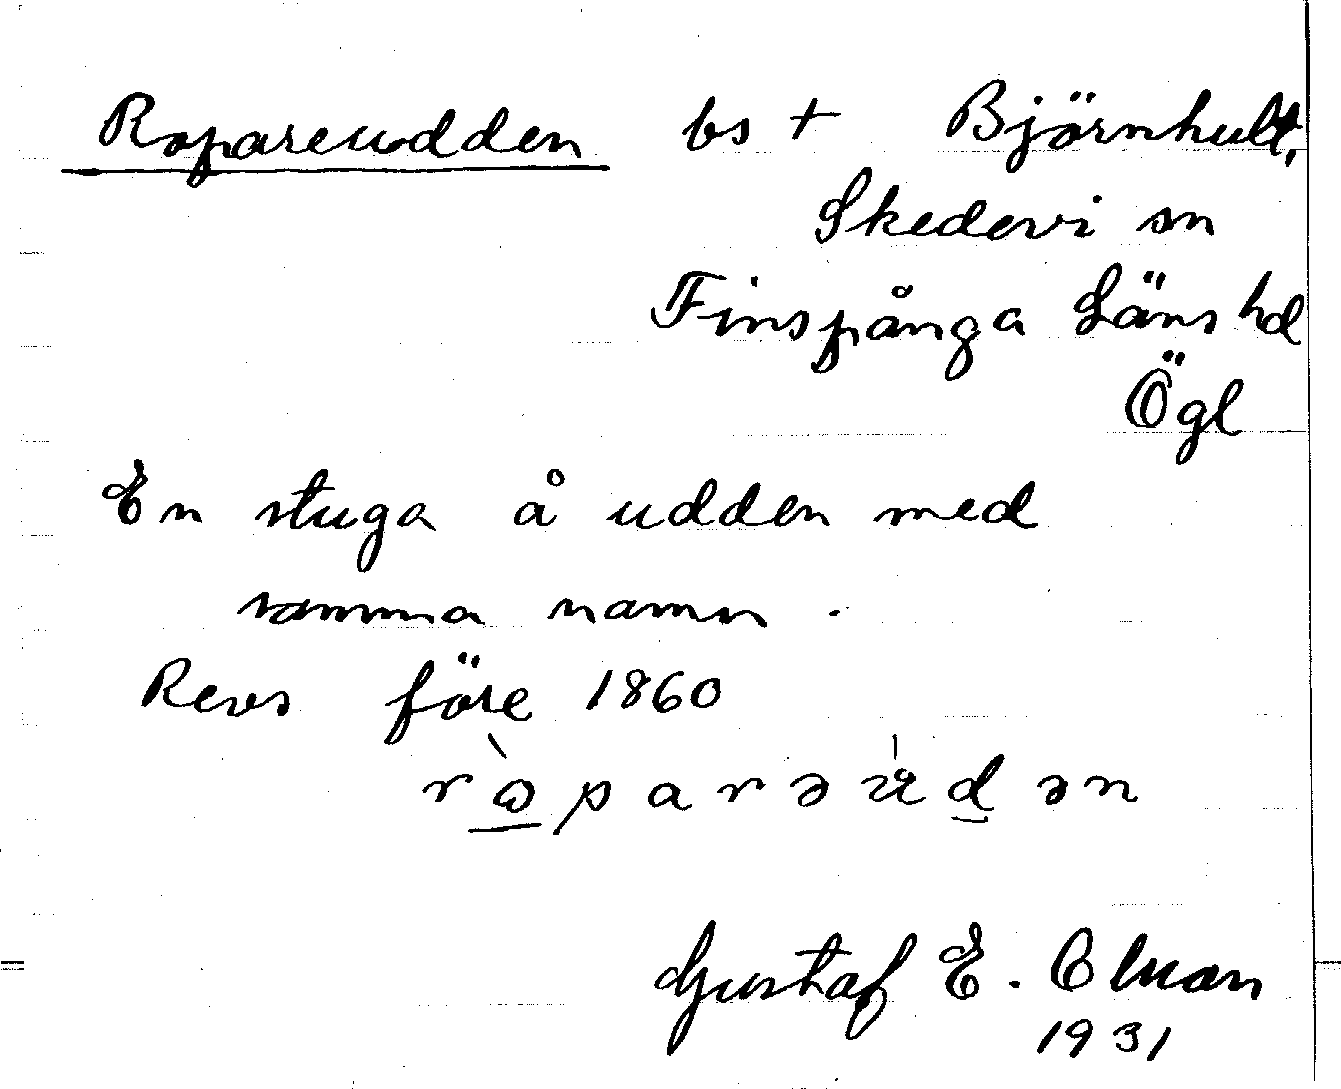 Ropareudden bs + Björnhult,
Skedevi sn
Finspånga Läns hd
Ögl
En stuga å udden med
samma namn.
Revs före 1860
Gustaf E.
1931